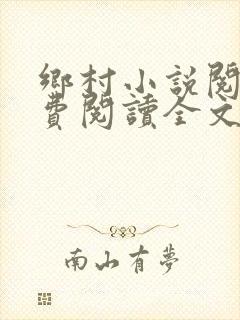 鄉村小説閱
費閱讀全文
南山有夢